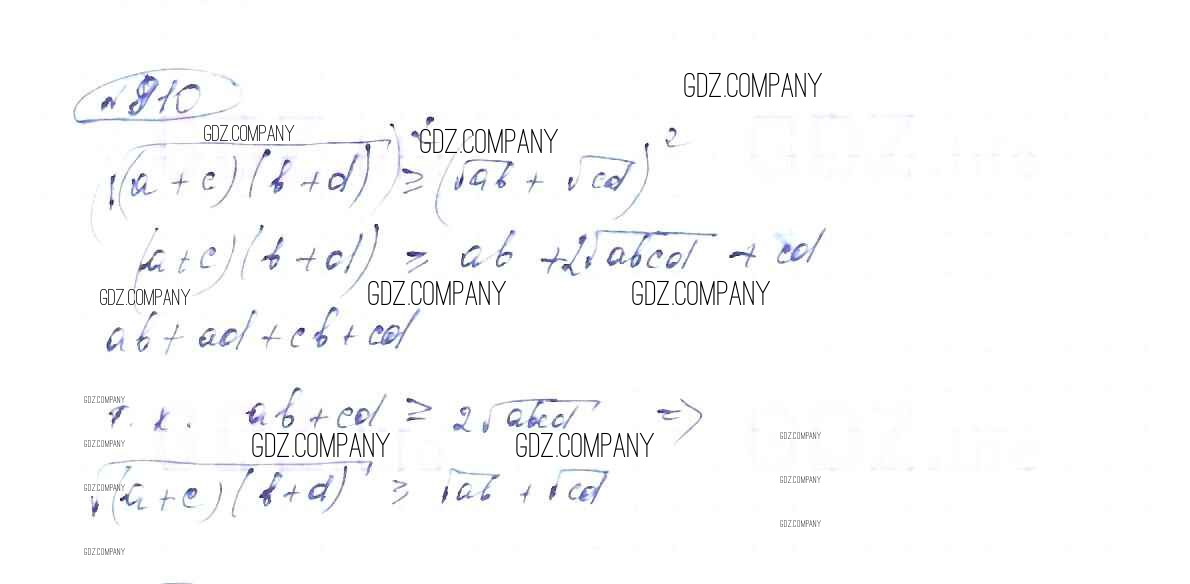 № 910
GDZ.COMPANY
GDZ.COMPANY
GDZ.COMPANY
(√((a+c)(b+d)))² ≥ (√ab + √cd)²
(a+c)(b+d) ≥ ab + 2√abcd + cd
GDZ.COMPANY
GDZ.COMPANY
GDZ.COMPANY
ab + ad + cb + cd
GDZ.COMPANY
т. к. ab + cd ≥ 2√abcd =>
GDZ.COMPANY
GDZ.COMPANY
GDZ.COMPANY
GDZ.COMPANY
√((a+c)(b+d)) ≥ √ab + √cd
GDZ.COMPANY
GDZ.COMPANY
GDZ.COMPANY
GDZ.COMPANY